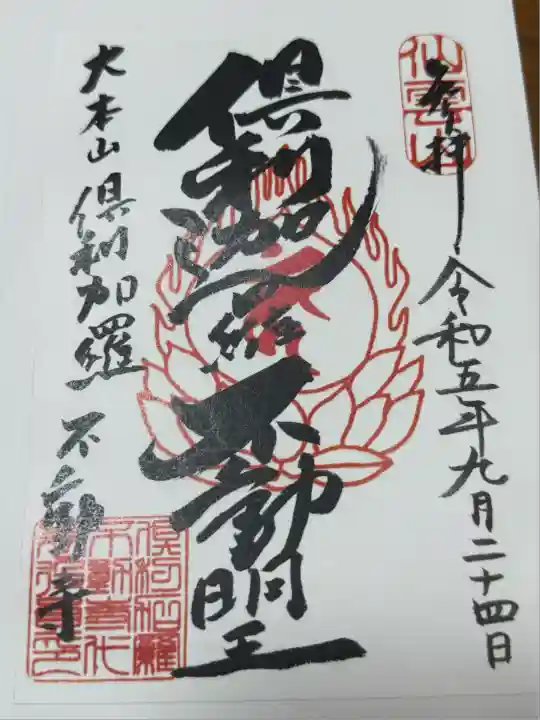 仙雲山
奉拝
令和五年九月二十四日
倶利迦羅不動明王
大本山 倶利加羅 不動寺